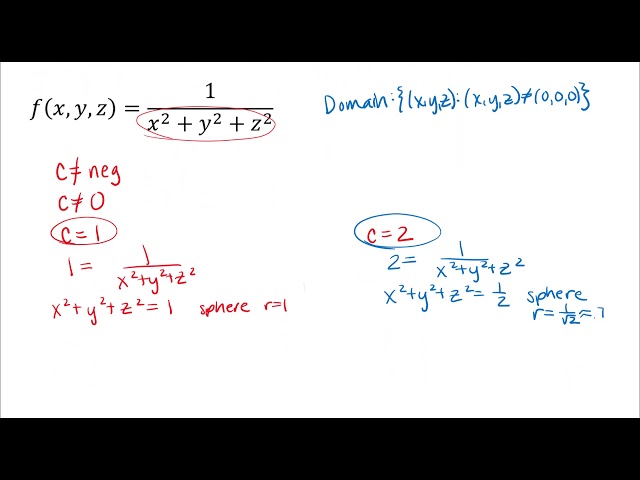 f(x, y, z) = 1 / (x² + y² + z²)
Domain: {(x,y,z): (x,y,z) ≠ (0,0,0)}
c ≠ neg
c ≠ 0
c = 1
1 = 1 / (x²+y²+z²)
x²+y²+z² = 1 sphere r=1
c = 2
2 = 1 / (x²+y²+z²)
x²+y²+z² = 1/2 sphere
r = 1/√2 ≈ .7